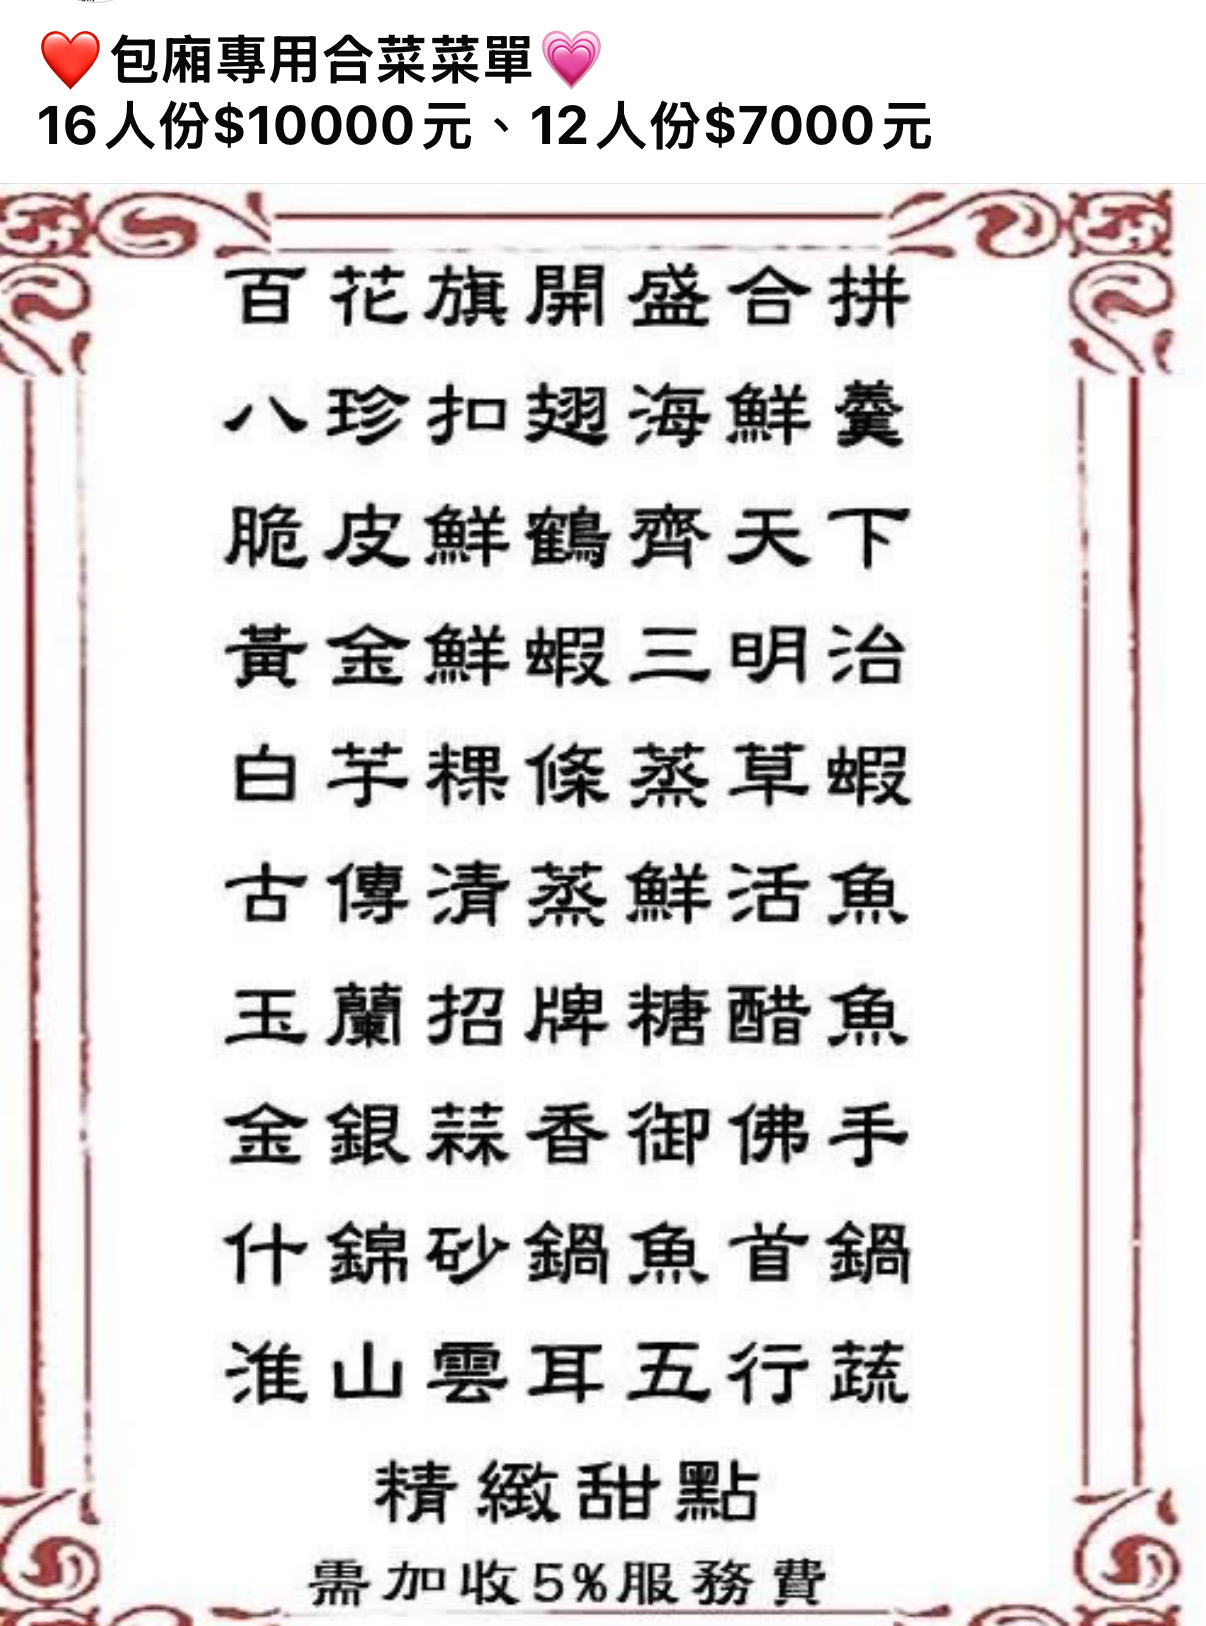 ❤️包廂專用合菜菜單💗
16人份$10000元、12人份$7000元
百花旗開盛合拼
八珍扣翅海鮮羹
脆皮鮮鶴齊天下
黃金鮮蝦三明治
白芋粿條蒸草蝦
古傳清蒸鮮活魚
玉蘭招牌糖醋魚
金銀蒜香御佛手
什錦砂鍋魚首鍋
淮山雲耳五行蔬
精緻甜點
需加收5%服務費